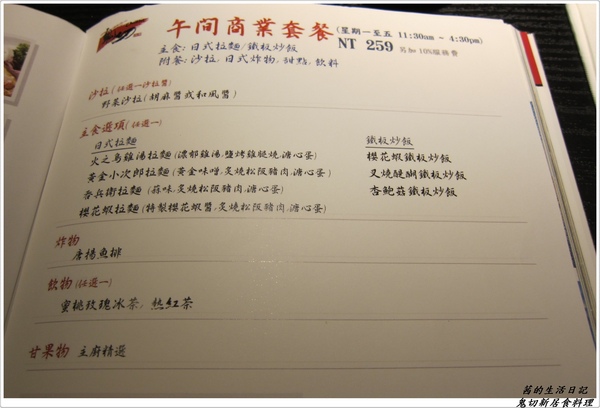 午间商業套餐(星期一至五 11:30am ~ 4:30pm)
主食:日式拉麵/鐵板炒飯 NT 259 另加10%服務費
附餐:沙拉,日式炸物,甜點,飲料
沙拉(任選一沙拉醬)
野菜沙拉(胡麻醬或和風醬)
主食選項(任選一)
日式拉麵
火之鳥雞湯拉麵(濃郁雞湯,鹽烤雞腿燒,溏心蛋)
黃金小次郎拉麵(黃金味噌,炙燒松阪豬肉,溏心蛋)
香兵衛拉麵(蒜味,炙燒松阪豬肉,溏心蛋)
櫻花蝦拉麵(特製櫻花蝦醬,炙燒松阪豬肉,溏心蛋)
鐵板炒飯
櫻花蝦鐵板炒飯
叉燒醍醐鐵板炒飯
杏鮑菇鐵板炒飯
炸物
唐揚魚排
飲物(任選一)
蜜桃玫瑰冰茶,熱紅茶
甘果物 主廚精選
茜的生活日記
鬼切新居食料理